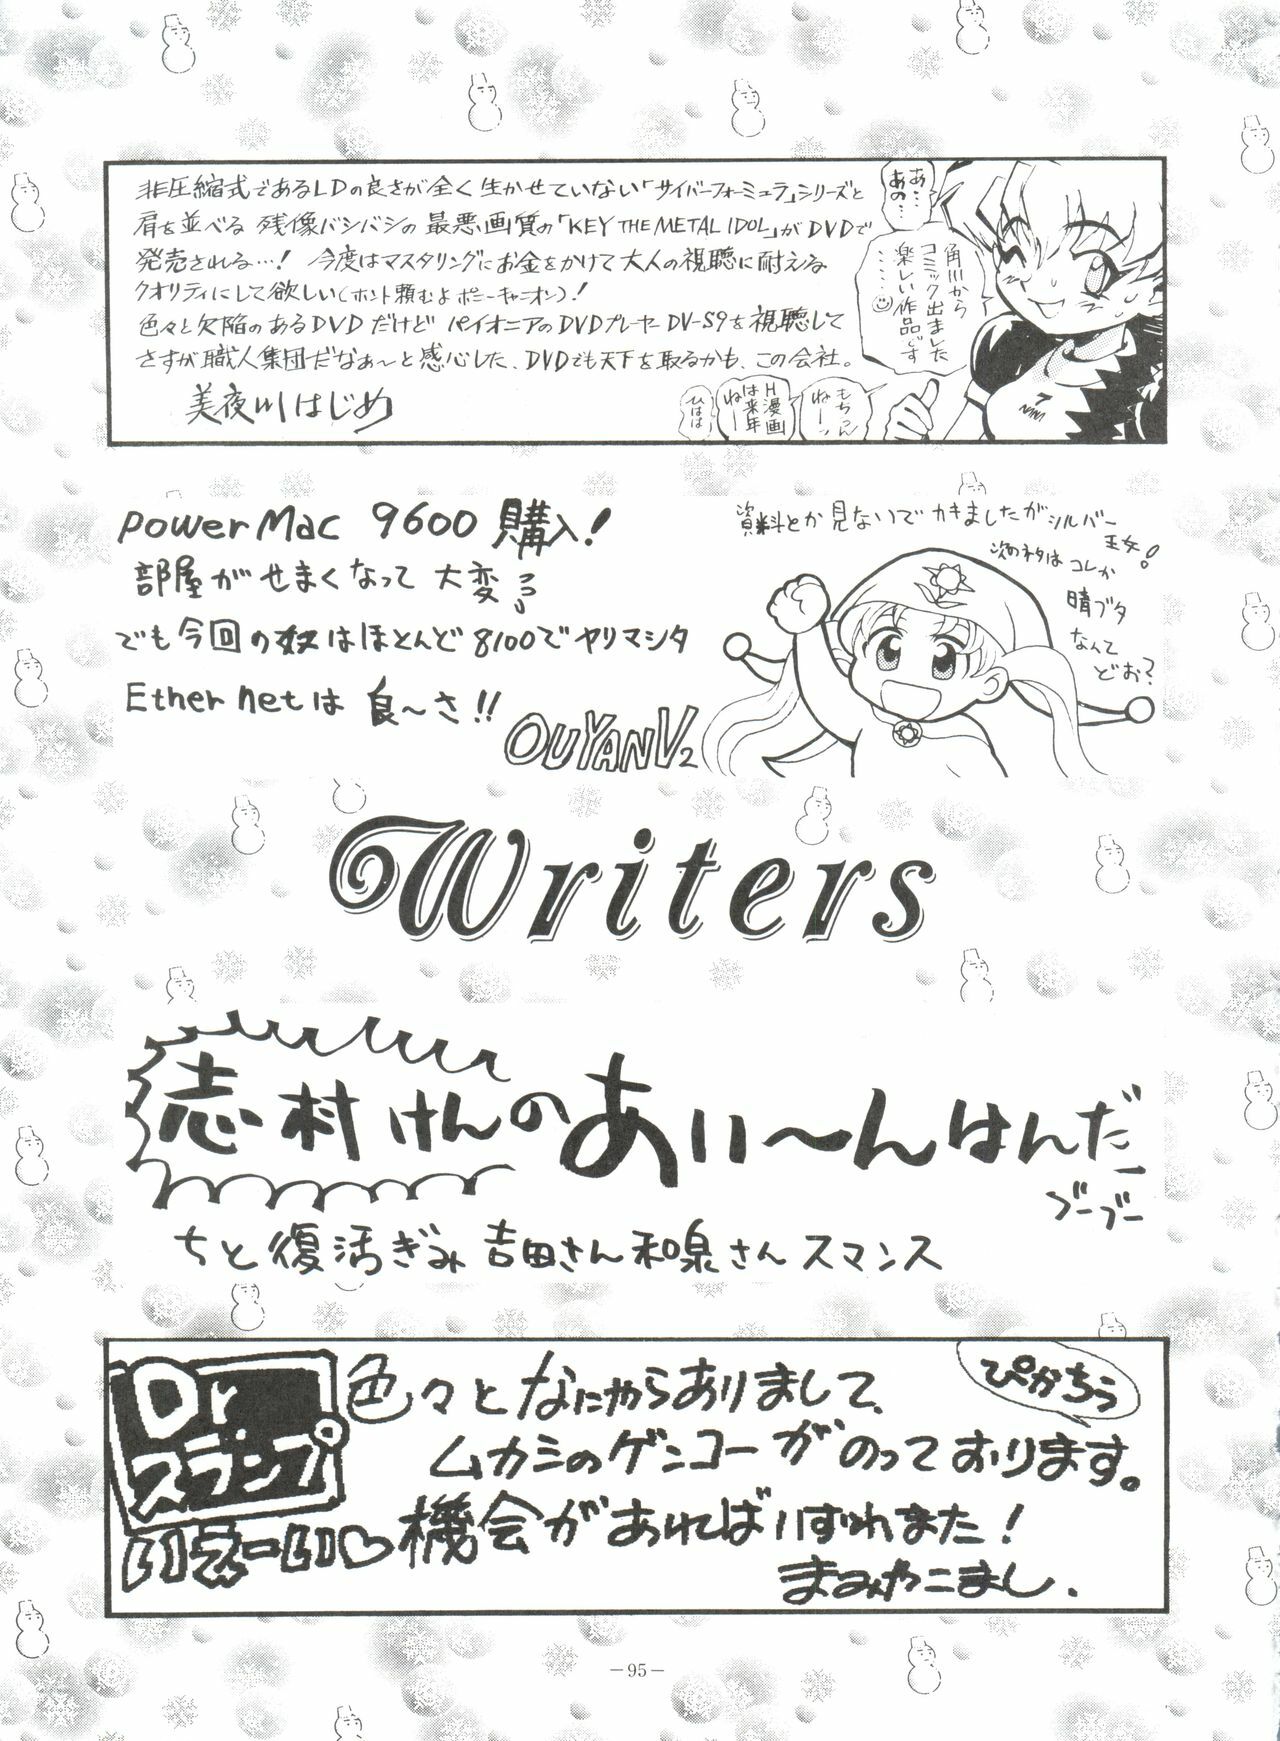 非圧縮式であるLDの良さが全く生かせていない「サイバーフォーミュラ」シリーズと
肩を並べる 残像バシバシの 最悪画質の「KEY THE METAL IDOL」がDVDで
発売される…！ 今度はマスタリングにお金をかけて大人の視聴に耐える
クオリティにして欲しい(ホント頼むよポニーキャニオン)！
色々と欠陥のあるDVDだけど パイオニアのDVDプレーヤーDV-S9を視聴して
さすが職人集団だなぁ〜と感心した、DVDでも天下を取るかも、この会社。
美夜川はじめ
あ…
あの…
角川から
コミック出ました
楽しい作品です
……
もちろん
ねーッ
H漫画
は来年
ねー
ひはは
7
powerMac 9600 購入！
部屋がせまくなって 大変
でも今回の奴はほとんど8100でヤリマシタ
Ethernetは 良〜さ!!
OUYANV2
資料とか見ないでかきましたがシルバー
王女！
次のネタは コレか
晴ブタ
なんて
どお？
Writers
志村けんのあい〜んはんだー
ブーブー
ちと復活ぎみ 吉田さん和泉さんスマンス
Dr
スランプ
いえーい♡
ぴかちう
色々となにやらありまして、
ムカシのゲンコーがのっております。
機会があればいずれまた！
まみやこまし．
－95－